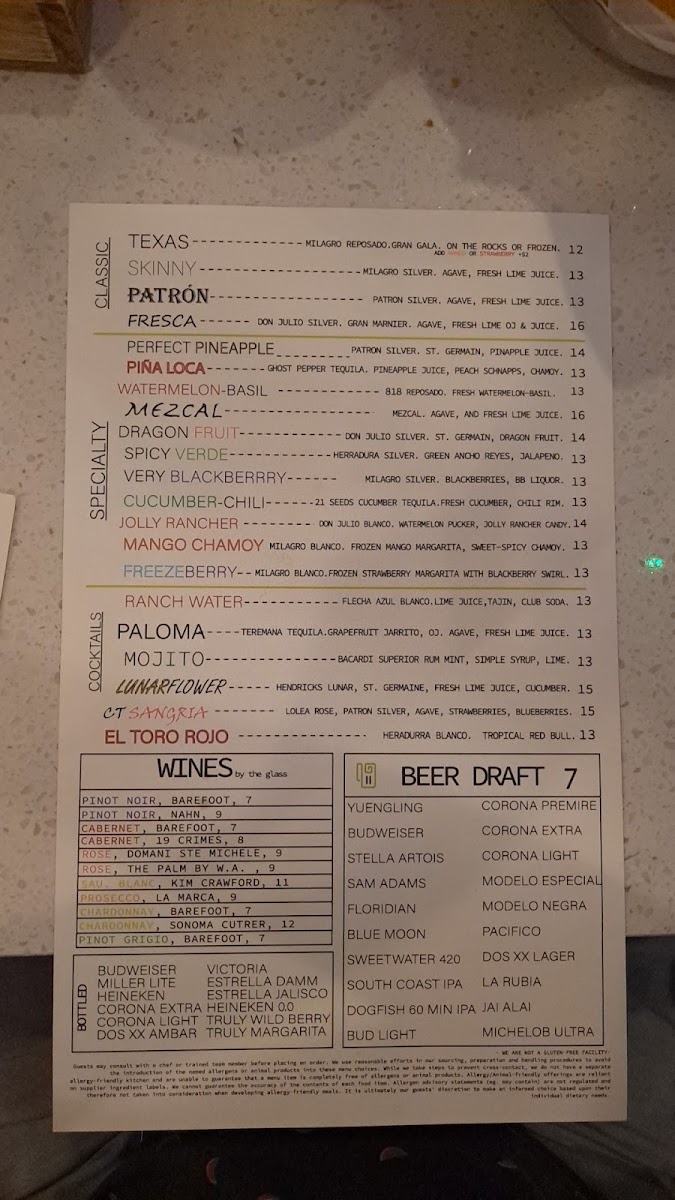 CLASSIC
TEXAS------------MILAGRO REPOSADO.GRAN GALA. ON THE ROCKS OR FROZEN. 12
ADD MANGO OR STRAWBERRY +$2
SKINNY------------------MILAGRO SILVER. AGAVE, FRESH LIME JUICE. 13
PATRÓN----------------- PATRON SILVER. AGAVE, FRESH LIME JUICE. 13
FRESCA------ DON JULIO SILVER. GRAN MARNIER. AGAVE, FRESH LIME OJ & JUICE. 16
SPECIALTY
PERFECT PINEAPPLE_________PATRON SILVER. ST. GERMAIN, PINAPPLE JUICE. 14
PIÑA LOCA-------GHOST PEPPER TEQUILA. PINEAPPLE JUICE, PEACH SCHNAPPS, CHAMOY. 13
WATERMELON-BASIL ------------ 818 REPOSADO. FRESH WATERMELON-BASIL. 13
MEZCAL------------------- MEZCAL. AGAVE, AND FRESH LIME JUICE. 16
DRAGON FRUIT------------DON JULIO SILVER. ST. GERMAIN, DRAGON FRUIT. 14
SPICY VERDE------------HERRADURA SILVER. GREEN ANCHO REYES, JALAPENO. 13
VERY BLACKBERRRY------ MILAGRO SILVER. BLACKBERRIES, BB LIQUOR. 13
CUCUMBER-CHILI------21 SEEDS CUCUMBER TEQUILA.FRESH CUCUMBER, CHILI RIM. 13
JOLLY RANCHER --------- DON JULIO BLANCO. WATERMELON PUCKER, JOLLY RANCHER CANDY.14
MANGO CHAMOY MILAGRO BLANCO. FROZEN MANGO MARGARITA, SWEET-SPICY CHAMOY. 13
FREEZEBERRY-- MILAGRO BLANCO.FROZEN STRAWBERRY MARGARITA WITH BLACKBERRY SWIRL. 13
COCKTAILS
RANCH WATER----------- FLECHA AZUL BLANCO.LIME JUICE,TAJIN, CLUB SODA. 13
PALOMA----TEREMANA TEQUILA.GRAPEFRUIT JARRITO, OJ. AGAVE, FRESH LIME JUICE. 13
MOJITO---------------BACARDI SUPERIOR RUM MINT, SIMPLE SYRUP, LIME. 13
LUNARFLOWER----- HENDRICKS LUNAR, ST. GERMAINE, FRESH LIME JUICE, CUCUMBER. 15
CT SANGRIA ------- LOLEA ROSE, PATRON SILVER, AGAVE, STRAWBERRIES, BLUEBERRIES. 15
EL TORO ROJO --------------- HERADURRA BLANCO. TROPICAL RED BULL. 13
WINES by the glass
PINOT NOIR, BAREFOOT, 7
PINOT NOIR, NAHN, 9
CABERNET, BAREFOOT, 7
CABERNET, 19 CRIMES, 8
ROSE, DOMANI STE MICHELE, 9
ROSE, THE PALM BY W.A. , 9
SAU. BLANC, KIM CRAWFORD, 11
PROSECCO, LA MARCA, 9
CHARDONNAY, BAREFOOT, 7
CHARDONNAY, SONOMA CUTRER, 12
PINOT GRIGIO, BAREFOOT, 7
BOTTLED
BUDWEISER VICTORIA
MILLER LITE ESTRELLA DAMM
HEINEKEN ESTRELLA JALISCO
CORONA EXTRA HEINEKEN 0.0
CORONA LIGHT TRULY WILD BERRY
DOS XX AMBAR TRULY MARGARITA
BEER DRAFT 7
YUENGLING CORONA PREMIRE
BUDWEISER CORONA EXTRA
STELLA ARTOIS CORONA LIGHT
SAM ADAMS MODELO ESPECIAL
FLORIDIAN MODELO NEGRA
BLUE MOON PACIFICO
SWEETWATER 420 DOS XX LAGER
SOUTH COAST IPA LA RUBIA
DOGFISH 60 MIN IPA JAI ALAI
BUD LIGHT MICHELOB ULTRA
- WE ARE NOT A GLUTEN FREE FACILITY-
Guests may consult with a chef or trained team member before placing an order. We use reasonable efforts in our sourcing, preparation and handling procedures to avoid
the introduction of the named allergens or animal products into these menu choices. While we take steps to prevent cross-contact, we do not have a separate
allergy-friendly kitchen and are unable to guarantee that a menu item is completely free of allergens or animal products. Allergy/Animal-friendly offerings are reliant
on supplier ingredient labels. We cannot guarantee the accuracy of the contents of each food item. Allergen advisory statements (eg. may contain) are not regulated and
therefore not taken into consideration when developing allergy-friendly meals. It is ultimately our guests' discretion to make an informed choice based upon their
individual dietary needs.